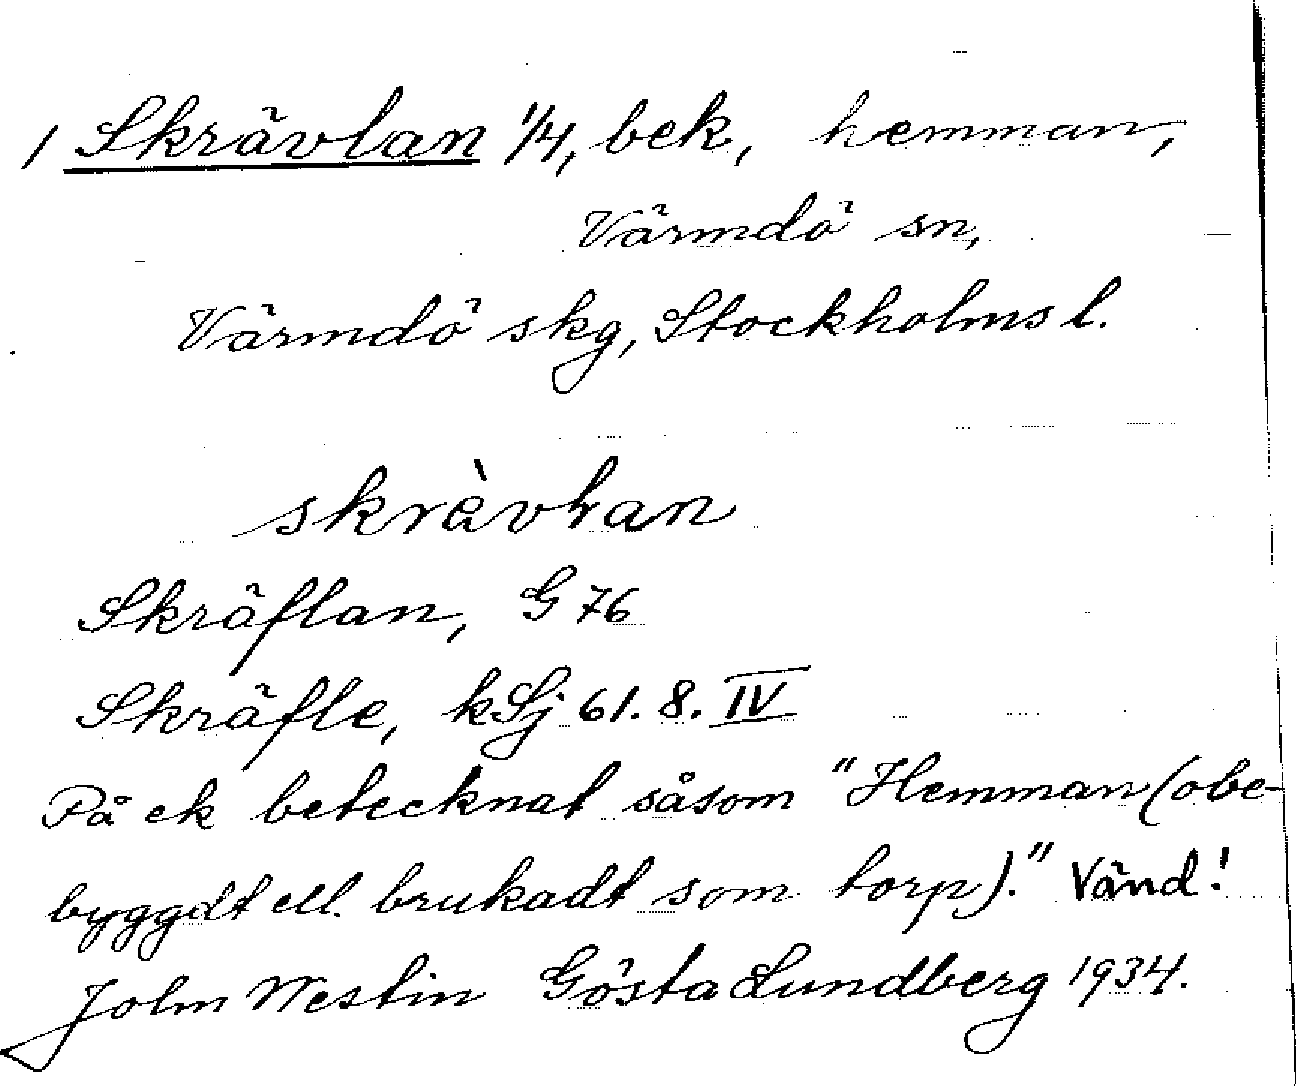 / Skrävlan 1/4, bek, hemman,
Värmdö sn,
Värmdö skg, Stockholms l.
skràvlan
Skräflan, G 76
Skräfle, kSj 61. 8. IV
På ek betecknat såsom "Hemman (obe-
byggdt ell. brukadt som torp)." Vänd!
John Westin Gösta Lundberg 1934.